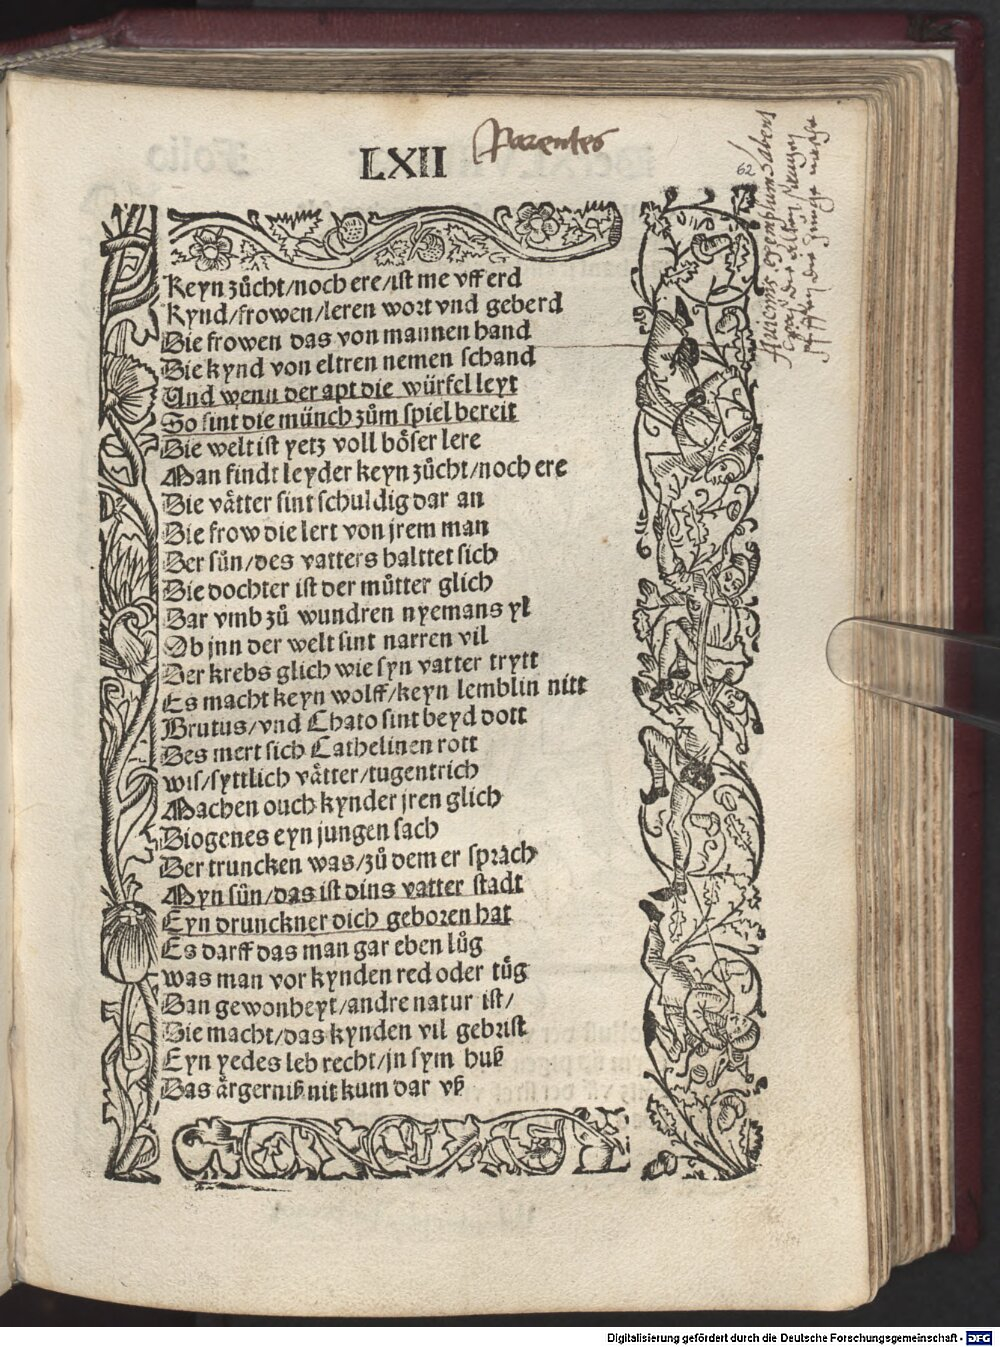 LXII
Parentes
62
Keyn zůcht/noch ere/ist me vff erd
Kynd/frowen/leren wort vnd geberd
Die frowen das von mannen hand
Die kynd von eltren nemen schand
Und wenn der apt die würfel leyt
So sint die münch zům spiel bereit
Die welt ist yetz voll böser lere
Man findt leyder keyn zůcht/noch ere
Die vätter sint schuldig dar an
Die frow die lert von jrem man
Der sůn/des vatters halttet sich
Die dochter ist der můtter glich
Dar vmb zů wundren nyemans yl
Ob jnn der welt sint narren vil
Der krebs glich wie syn vatter trytt
Es macht keyn wolff/keyn lemblin nitt
Brutus/vnd Chato sint beyd dott
Des mert sich Cathelinen rott
wis/syttlich vätter/tugentrich
Machen ouch kynder jren glich
Diogenes eyn jungen sach
Der truncken was/zů dem er sprach
Myn sůn/das ist dins vatter stadt
Eyn drunckner dich geboren hat
Es darff das man gar eben lůg
was man vor kynden red oder tůg
Dan gewonheyt/andre natur ist/
Die macht/das kynden vil gebrist
Eyn yedes leb recht/jn sym huß
Das ärgerniß nit kum dar vß
Digitalisierung gefördert durch die Deutsche Forschungsgemeinschaft - DFG